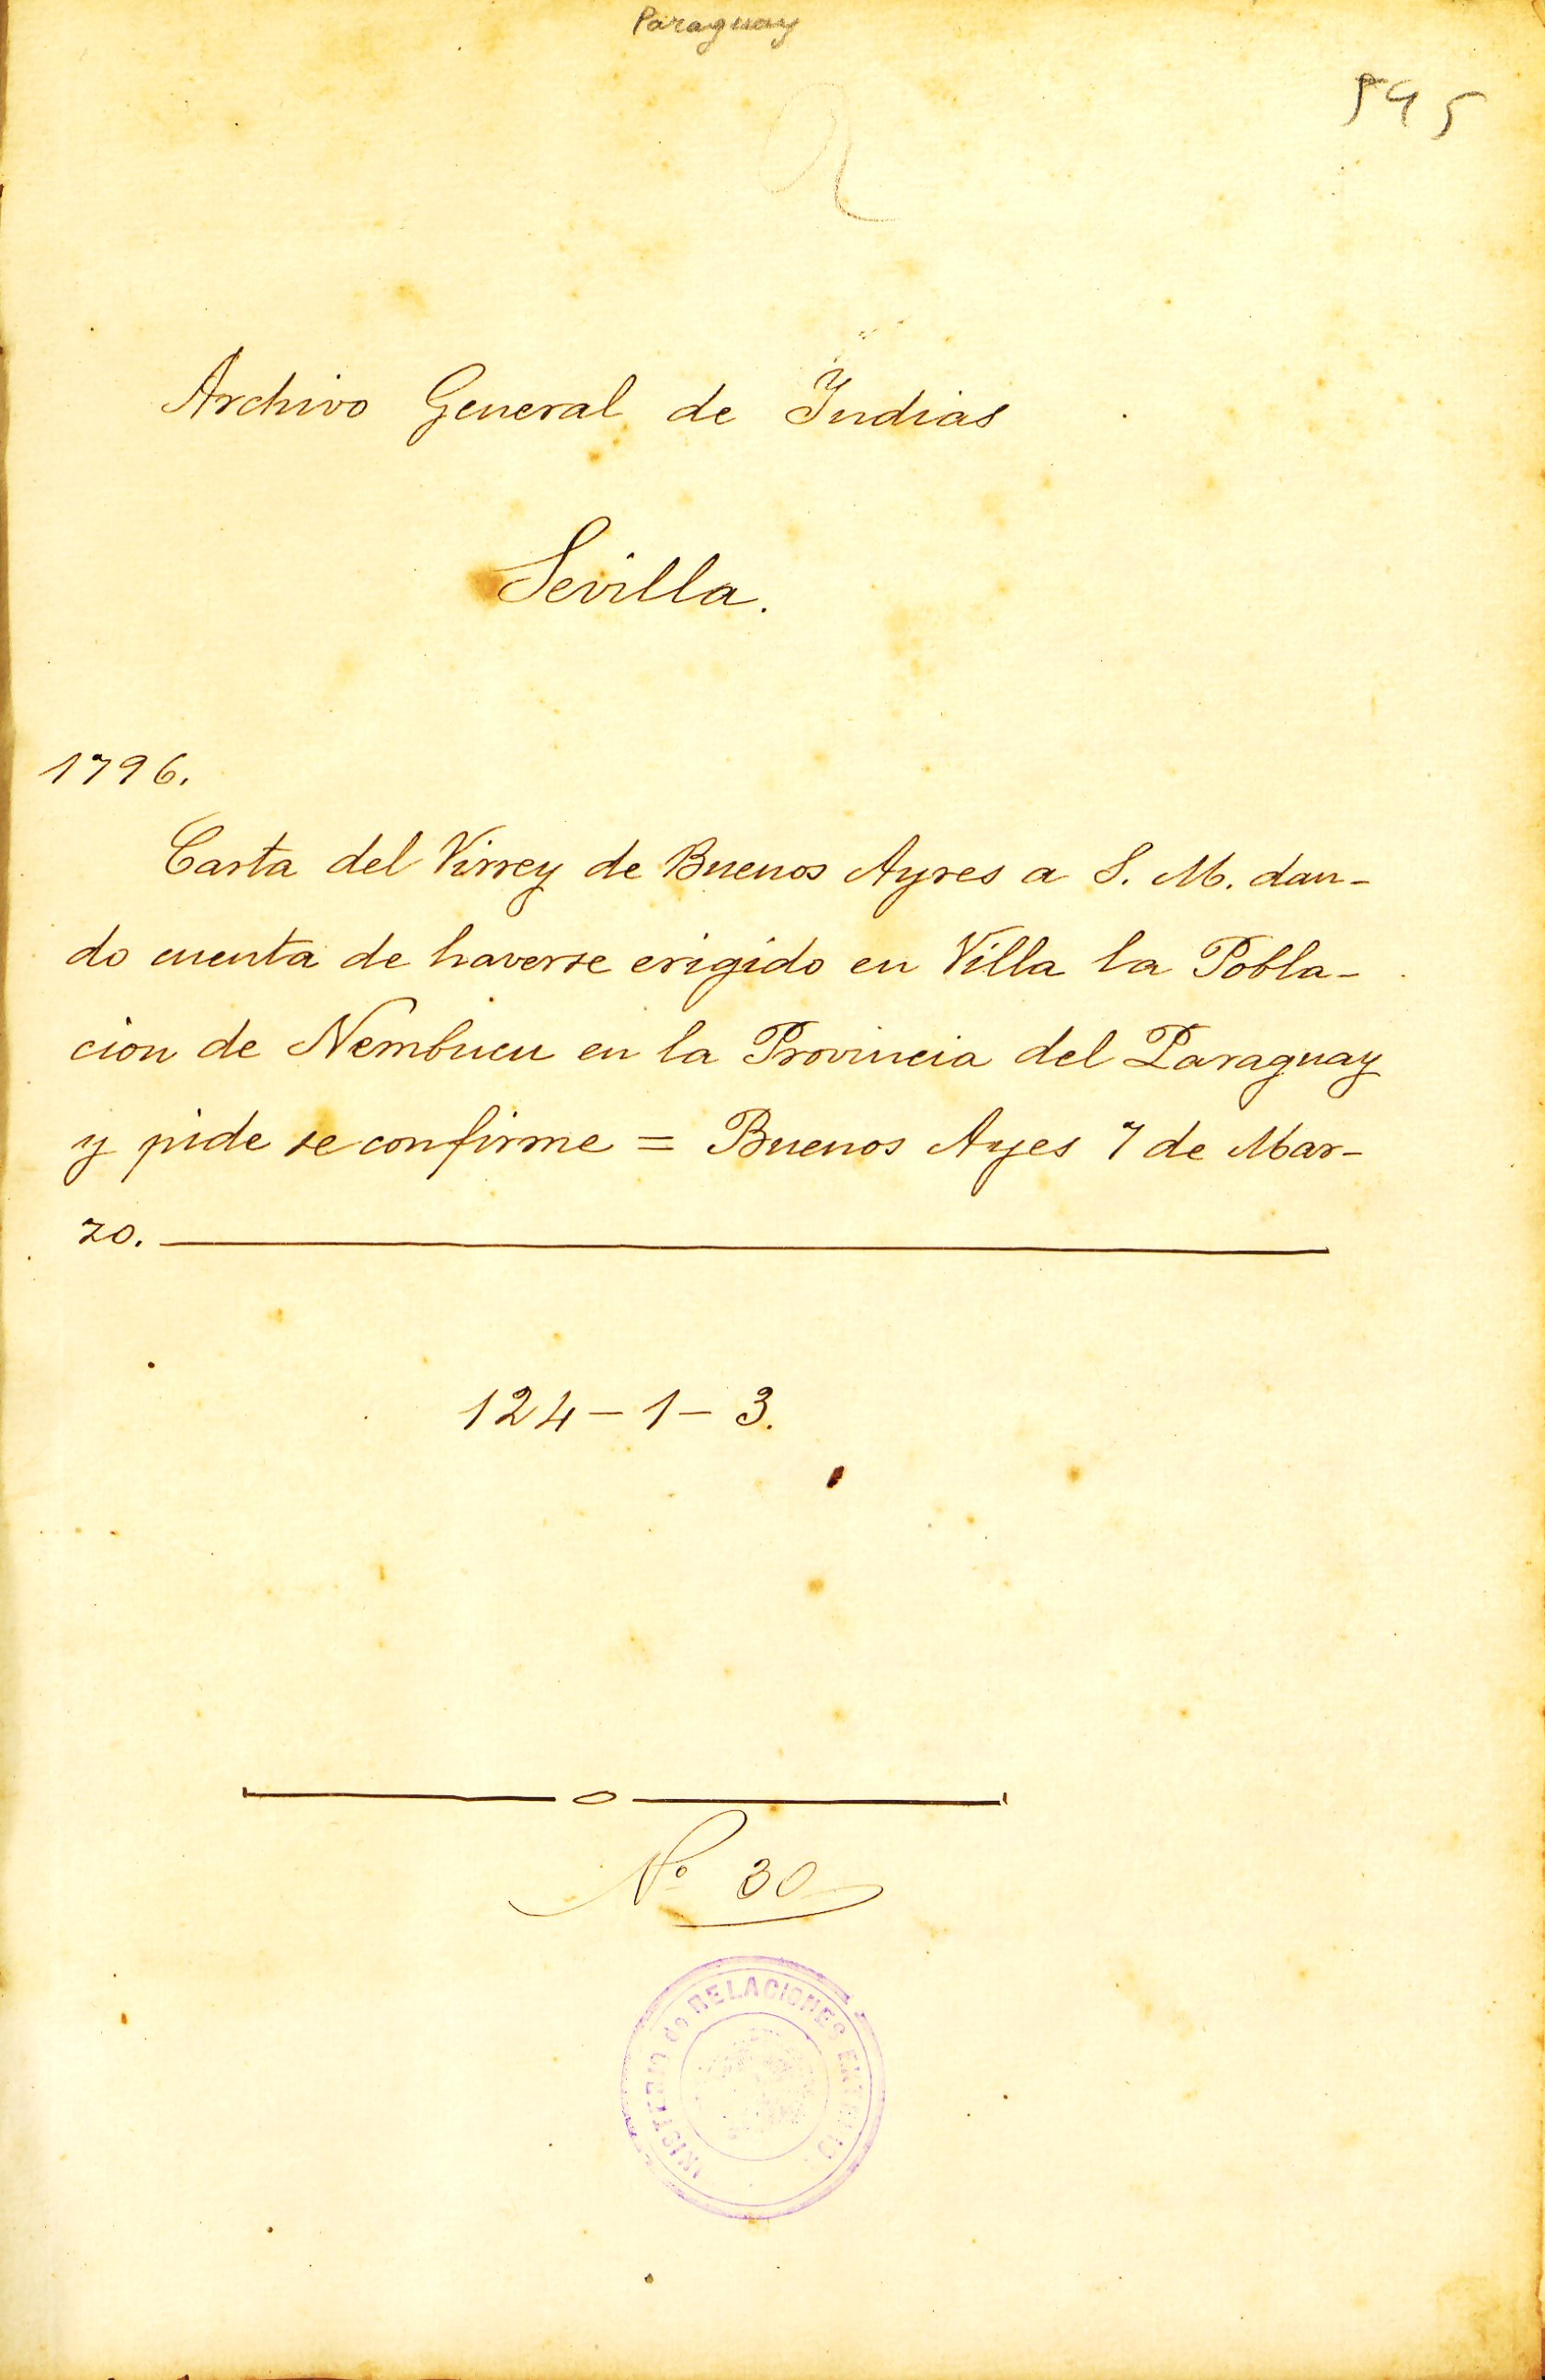 Paraguay
595
Archivo General de Indias
Sevilla.
1796.
Carta del Virrey de Buenos Ayres a S. M. dan-
do cuenta de haverse erigido en Villa la Pobla-
cion de Nembucu en la Provincia del Paraguay
y pide se confirme = Buenos Ayes 7 de Mar-
zo.
124-1-3.
Nº 30
MINISTERIO de RELACIONES EXTERIO